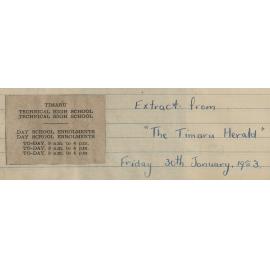 TIMARU
TECHNICAL HIGH SCHOOL
TECHNICAL HIGH SCHOOL
DAY SCHOOL ENROLMENTS
DAY SCHOOL ENROLMENTS
TO-DAY, 9 a.m. to 4 p.m.
TO-DAY, 9 a.m. to 4 p.m.
TO-DAY, 9 a.m. to 4 p.m.
Extract from
"The Timaru Herald"
Friday 30th January, 1953.